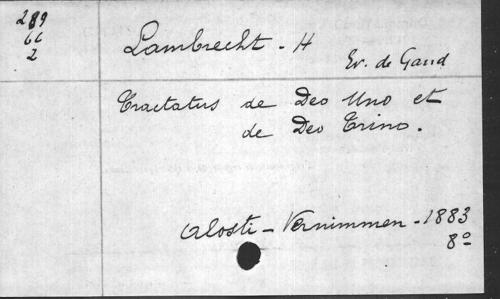 289
66
2
Lambrecht - H
Ev. de Gand
Tractatus de Deo Uno et
de Deo Trino.
Alosti - Vernimmen - 1883
8º